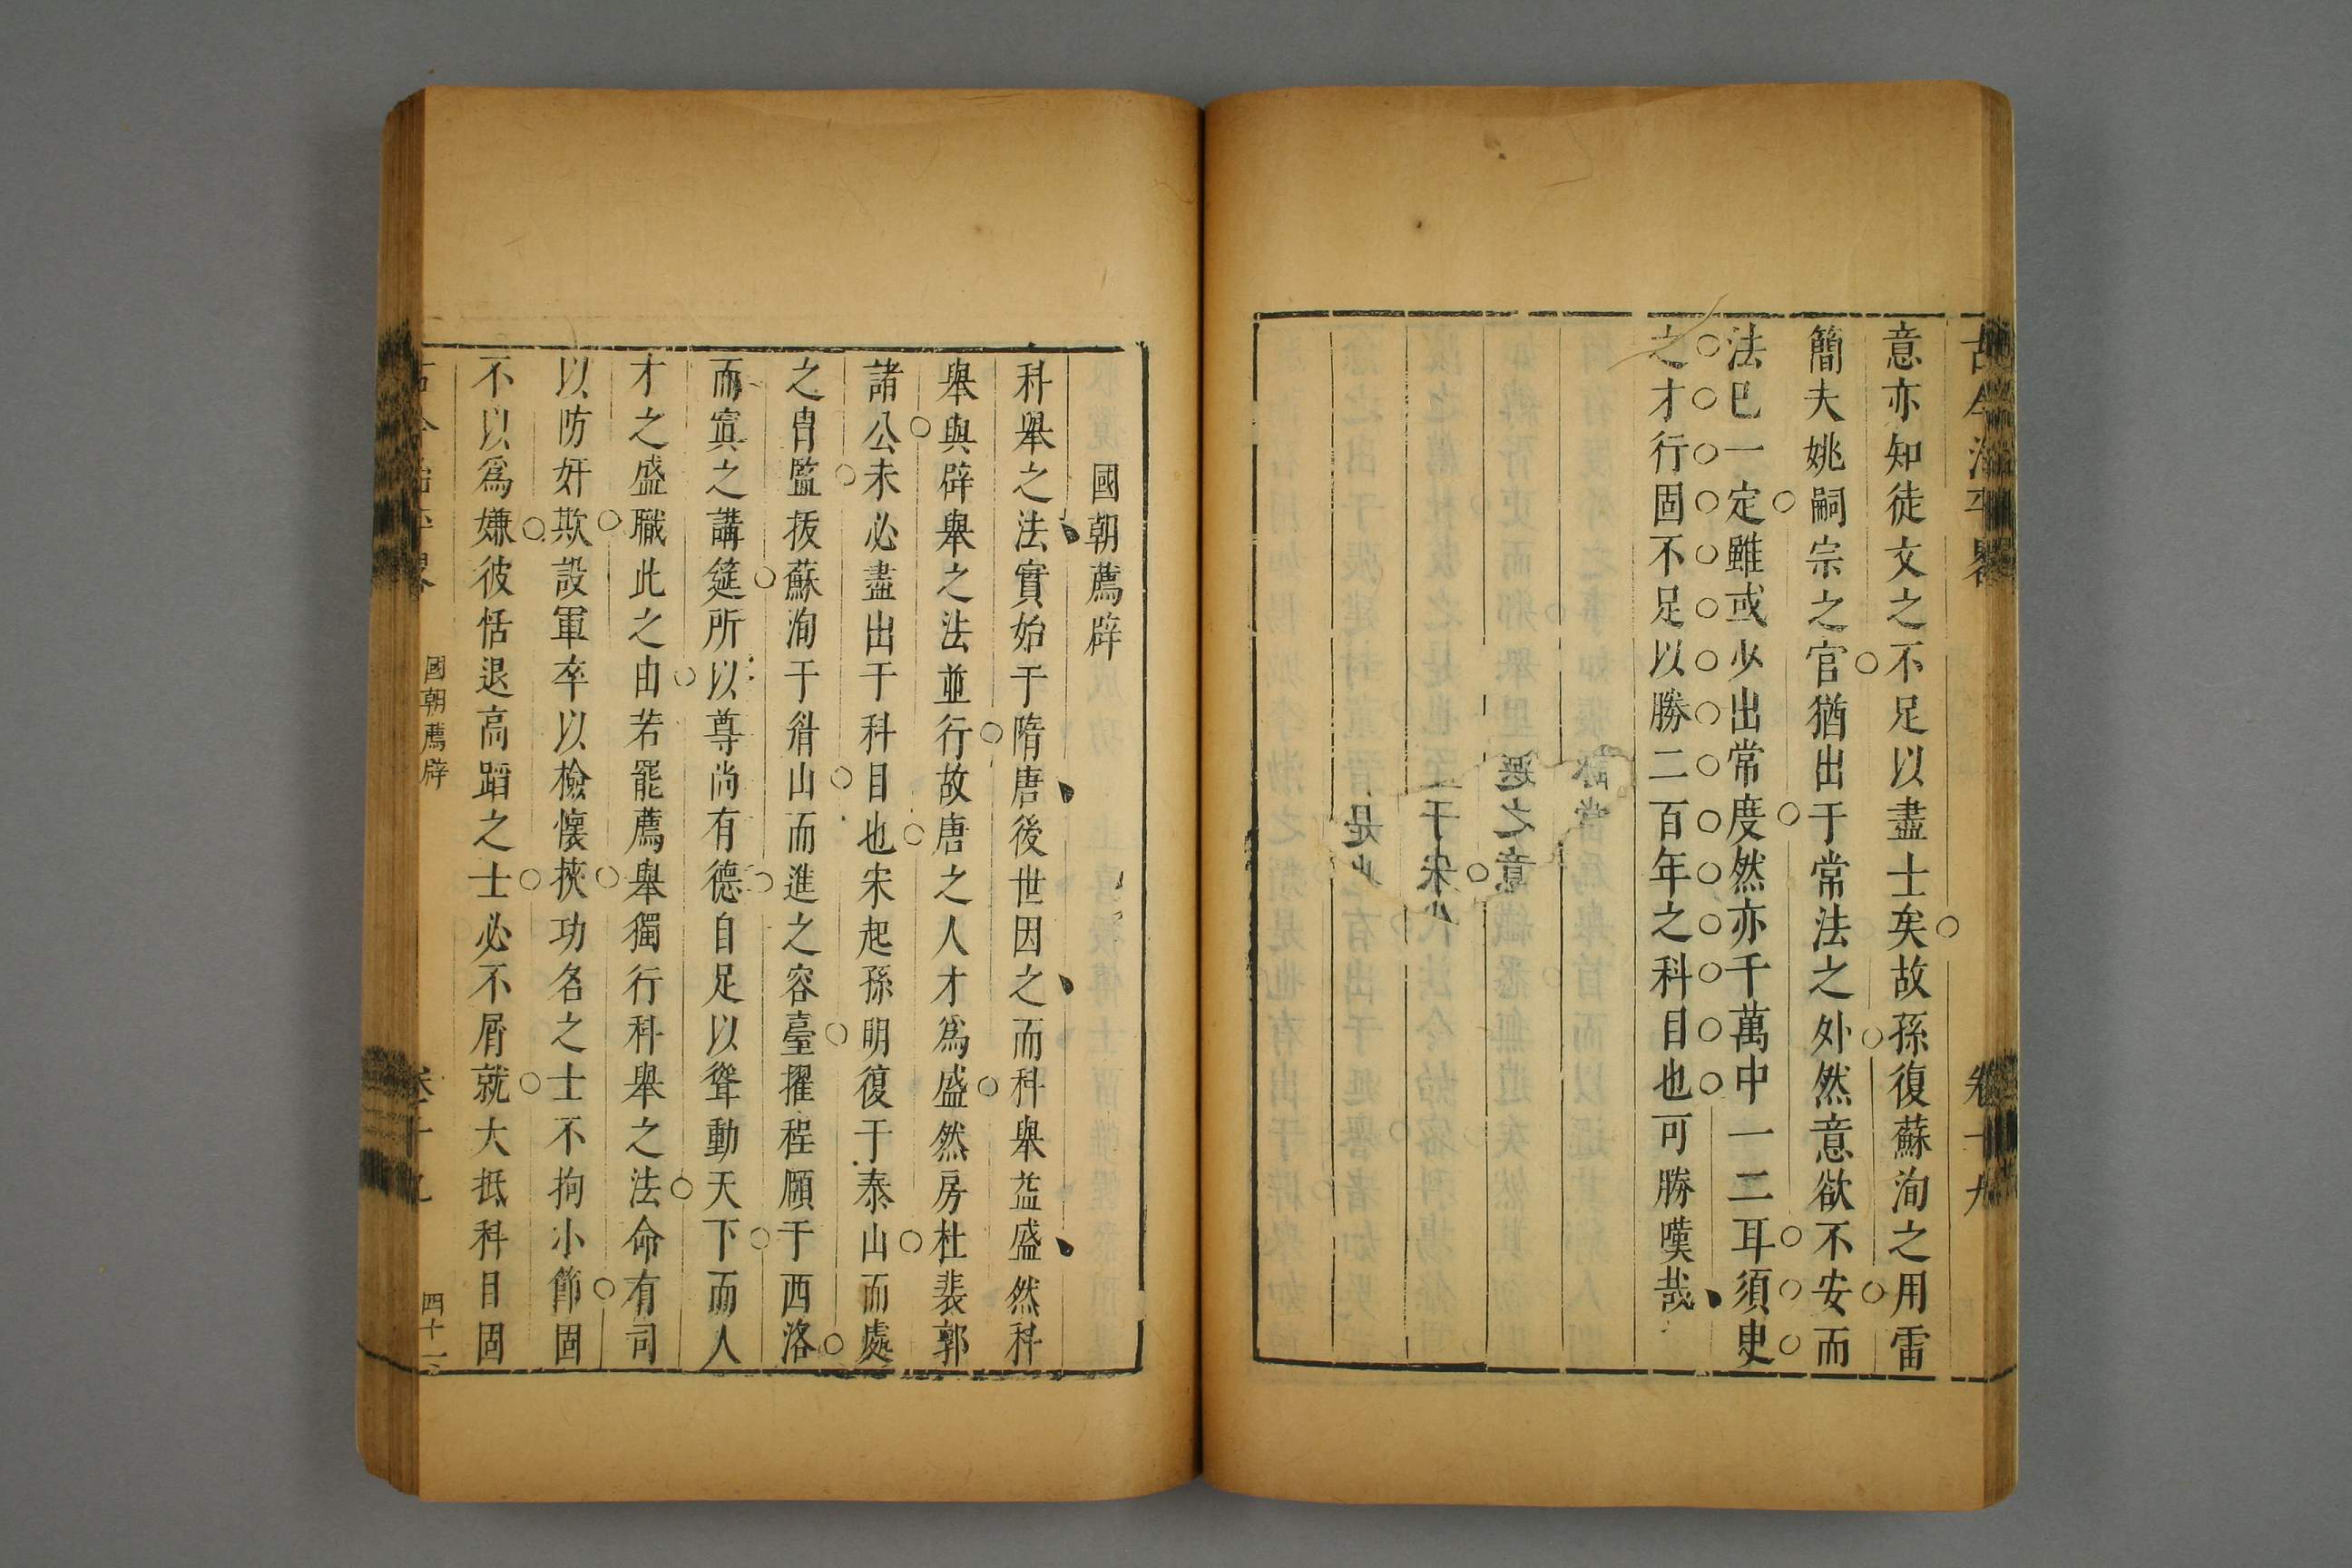 意亦知徒文之不足以盡士矣故孫復蘇洵之用雷
簡夫姚嗣宗之官猶出于常法之外然意欲不安而
法已一定雖或少出常度然亦千萬中一二耳須臾
之才行固不足以勝二百年之科目也可勝嘆哉
國朝薦辟
科舉之法實始于隋唐後世因之而科舉益盛然科
舉與辟舉之法並行故唐之人才爲盛然房杜裴郭
諸公未必盡出于科目也宋起孫明復于泰山而處
之胄監拔蘇洵于眉山而進之容臺擢程頤于西洛
而寘之講筵所以尊尚有德自足以聳動天下而人
才之盛職此之由若罷薦舉獨行科舉之法命有司
以防奸欺設軍卒以檢懷挾功名之士不拘小節固
不以爲嫌彼恬退高蹈之士必不屑就大抵科目固
國朝薦辟
卷十九